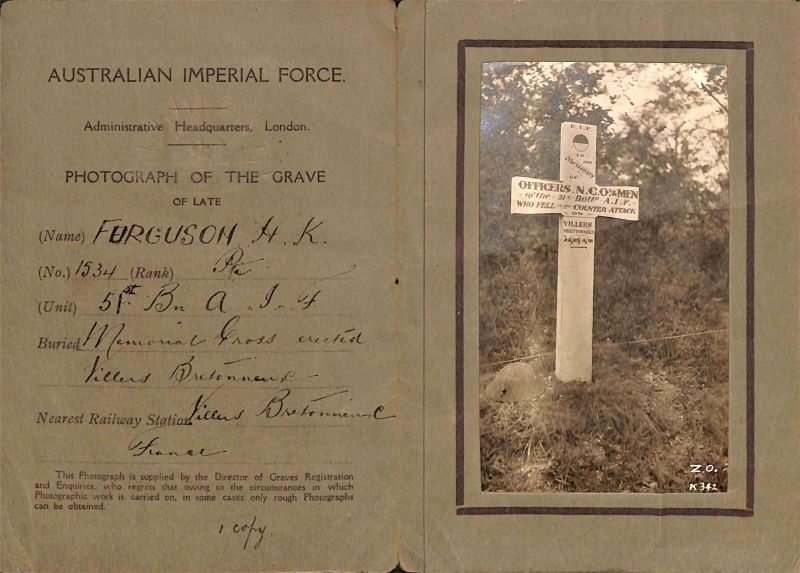 AUSTRALIAN IMPERIAL FORCE.
Administrative Headquarters, London.
PHOTOGRAPH OF THE GRAVE
OF LATE
(Name) FURGUSON H. K.
(No.) 1534 (Rank) Pte
(Unit) 51st Bn A. I. F
Buried Memorial Cross erected
Villers Bretonneux
Nearest Railway Station Villers Bretonneux
France
This Photograph is supplied by the Director of Graves Registration
and Enquiries, who regrets that owing to the circumstances in which
Photographic work is carried on, in some cases only rough Photographs
can be obtained.
1 copy.
R.I.P
TO THE
Memory
OF
OFFICERS, N.C.O's & MEN
of the 51st Battn A.I.F.
WHO FELL IN THE COUNTER-ATTACK
ON
VILLERS
BRETTONNEUX
Z.O.
K 342